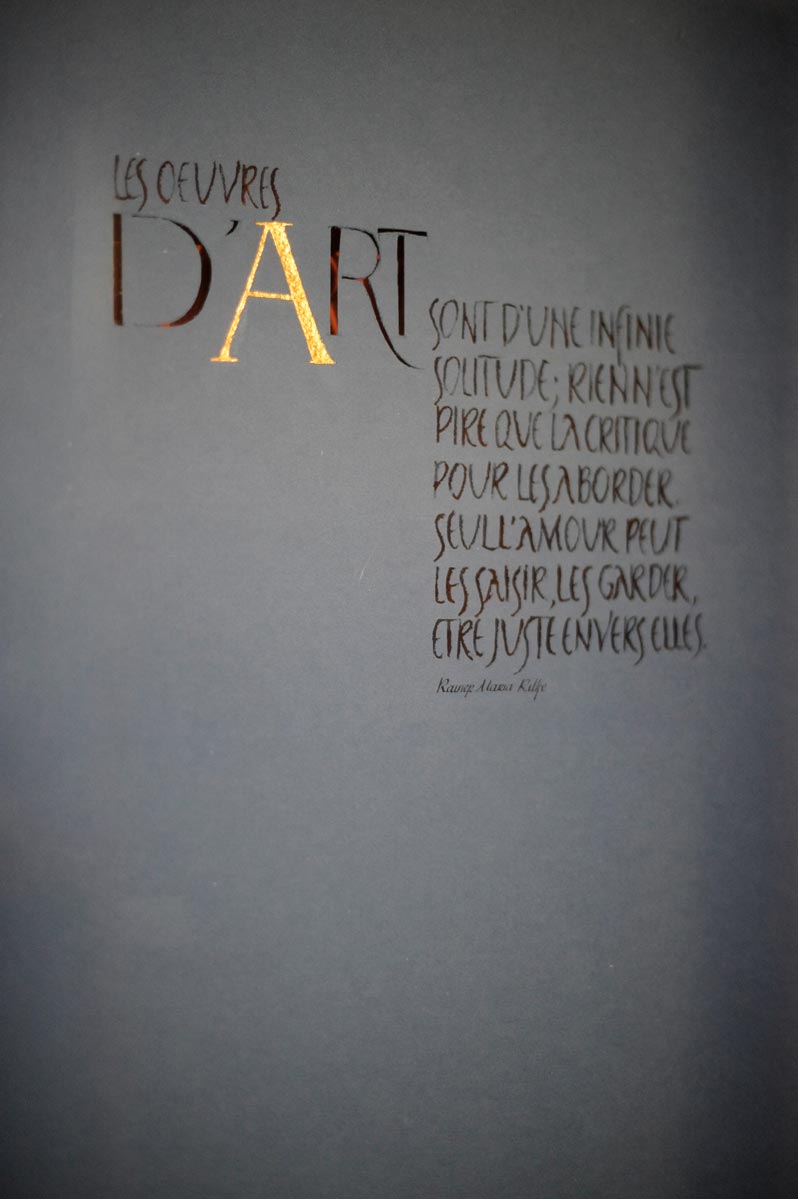 LES OEUVRES
D'ART
SONT D'UNE INFINIE
SOLITUDE; RIEN N'EST
PIRE QUE LA CRITIQUE
POUR LES ABORDER.
SEUL L'AMOUR PEUT
LES SAISIR, LES GARDER,
ETRE JUSTE ENVERS ELLES.
Rainer Maria Rilke